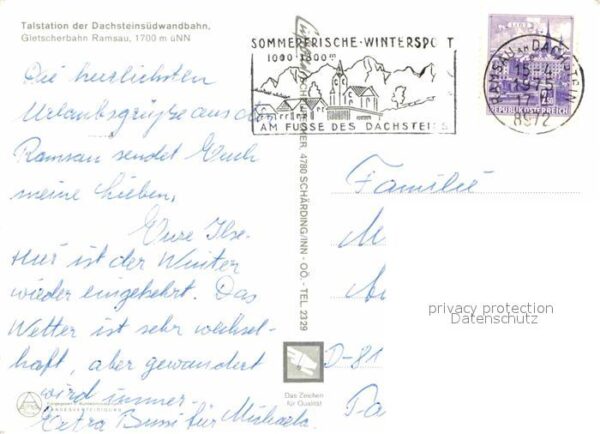 Talstation der Dachsteinsüdwandbahn,
Gletscherbahn Ramsau, 1700 m üNN
Die herzlichsten
Urlaubsgrüße aus der
Ramsau sendet Euch
meine Lieben,
Eure Ilse.
Hier ist der Winter
wieder eingekehrt. Das
Wetter ist sehr wechsel-
haft, aber gewandert
wird immer.
Extra Bussi für Michaela
SOMMERFRISCHE-WINTERSPORT
1000-1300m
AM FUSSE DES DACHSTEINS
RAMSAU AM DACHSTEIN
8972
2.50
REPUBLIK ÖSTERREICH
4780 SCHÄRDING/INN - OÖ. - TEL. 2329
Familie
M
privacy protection
Datenschutz
D-81
Das Zeichen
für Qualität